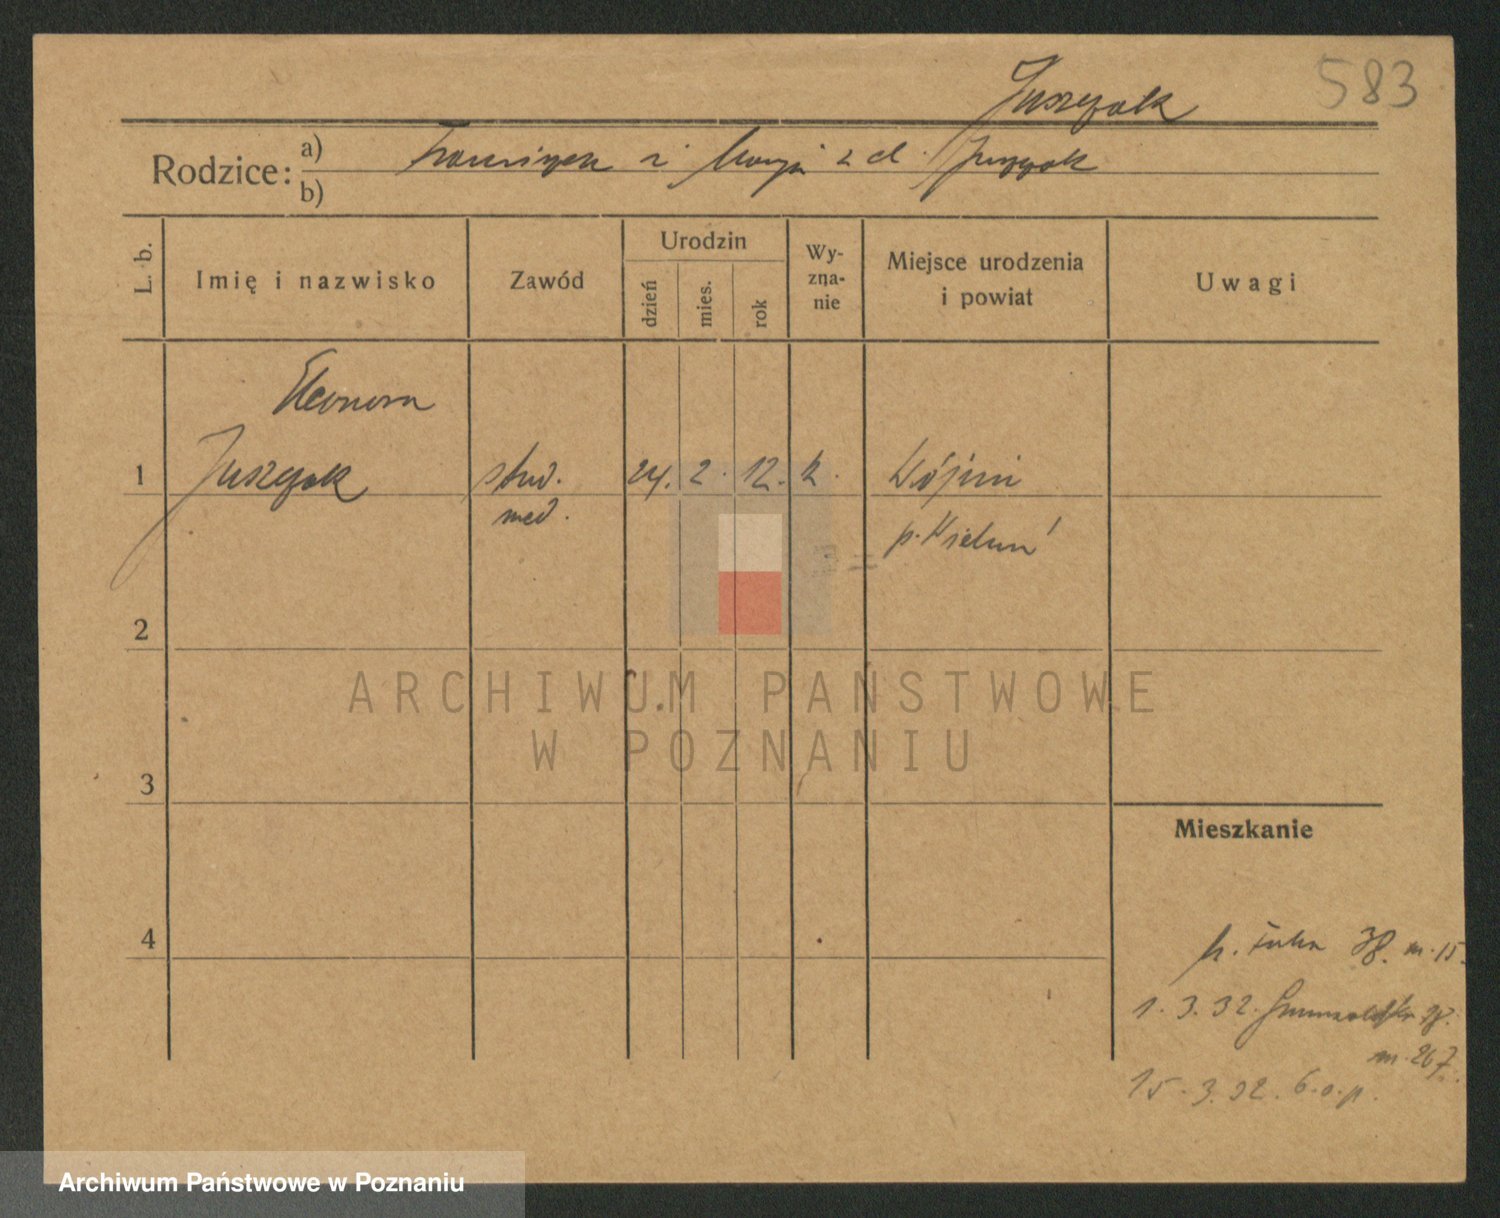 583
Juszczak
Rodzice: a) Franciszek i Marja z d. Juszczak
b)
L. b.
Imię i nazwisko
Zawód
Urodzin
dzień
mies.
rok
Wy-
zna-
nie
Miejsce urodzenia
i powiat
Uwagi
Eleonora
1 Juszczak stud. 24. 2. 12. k.
med.
p. Wieluń
2
ARCHIWUM PAŃSTWOWE
W POZNANIU
3
Mieszkanie
4
38. m. 15.
1. 3. 32. Grunwaldzka
m. 267.
15. 3. 32.
Archiwum Państwowe w Poznaniu